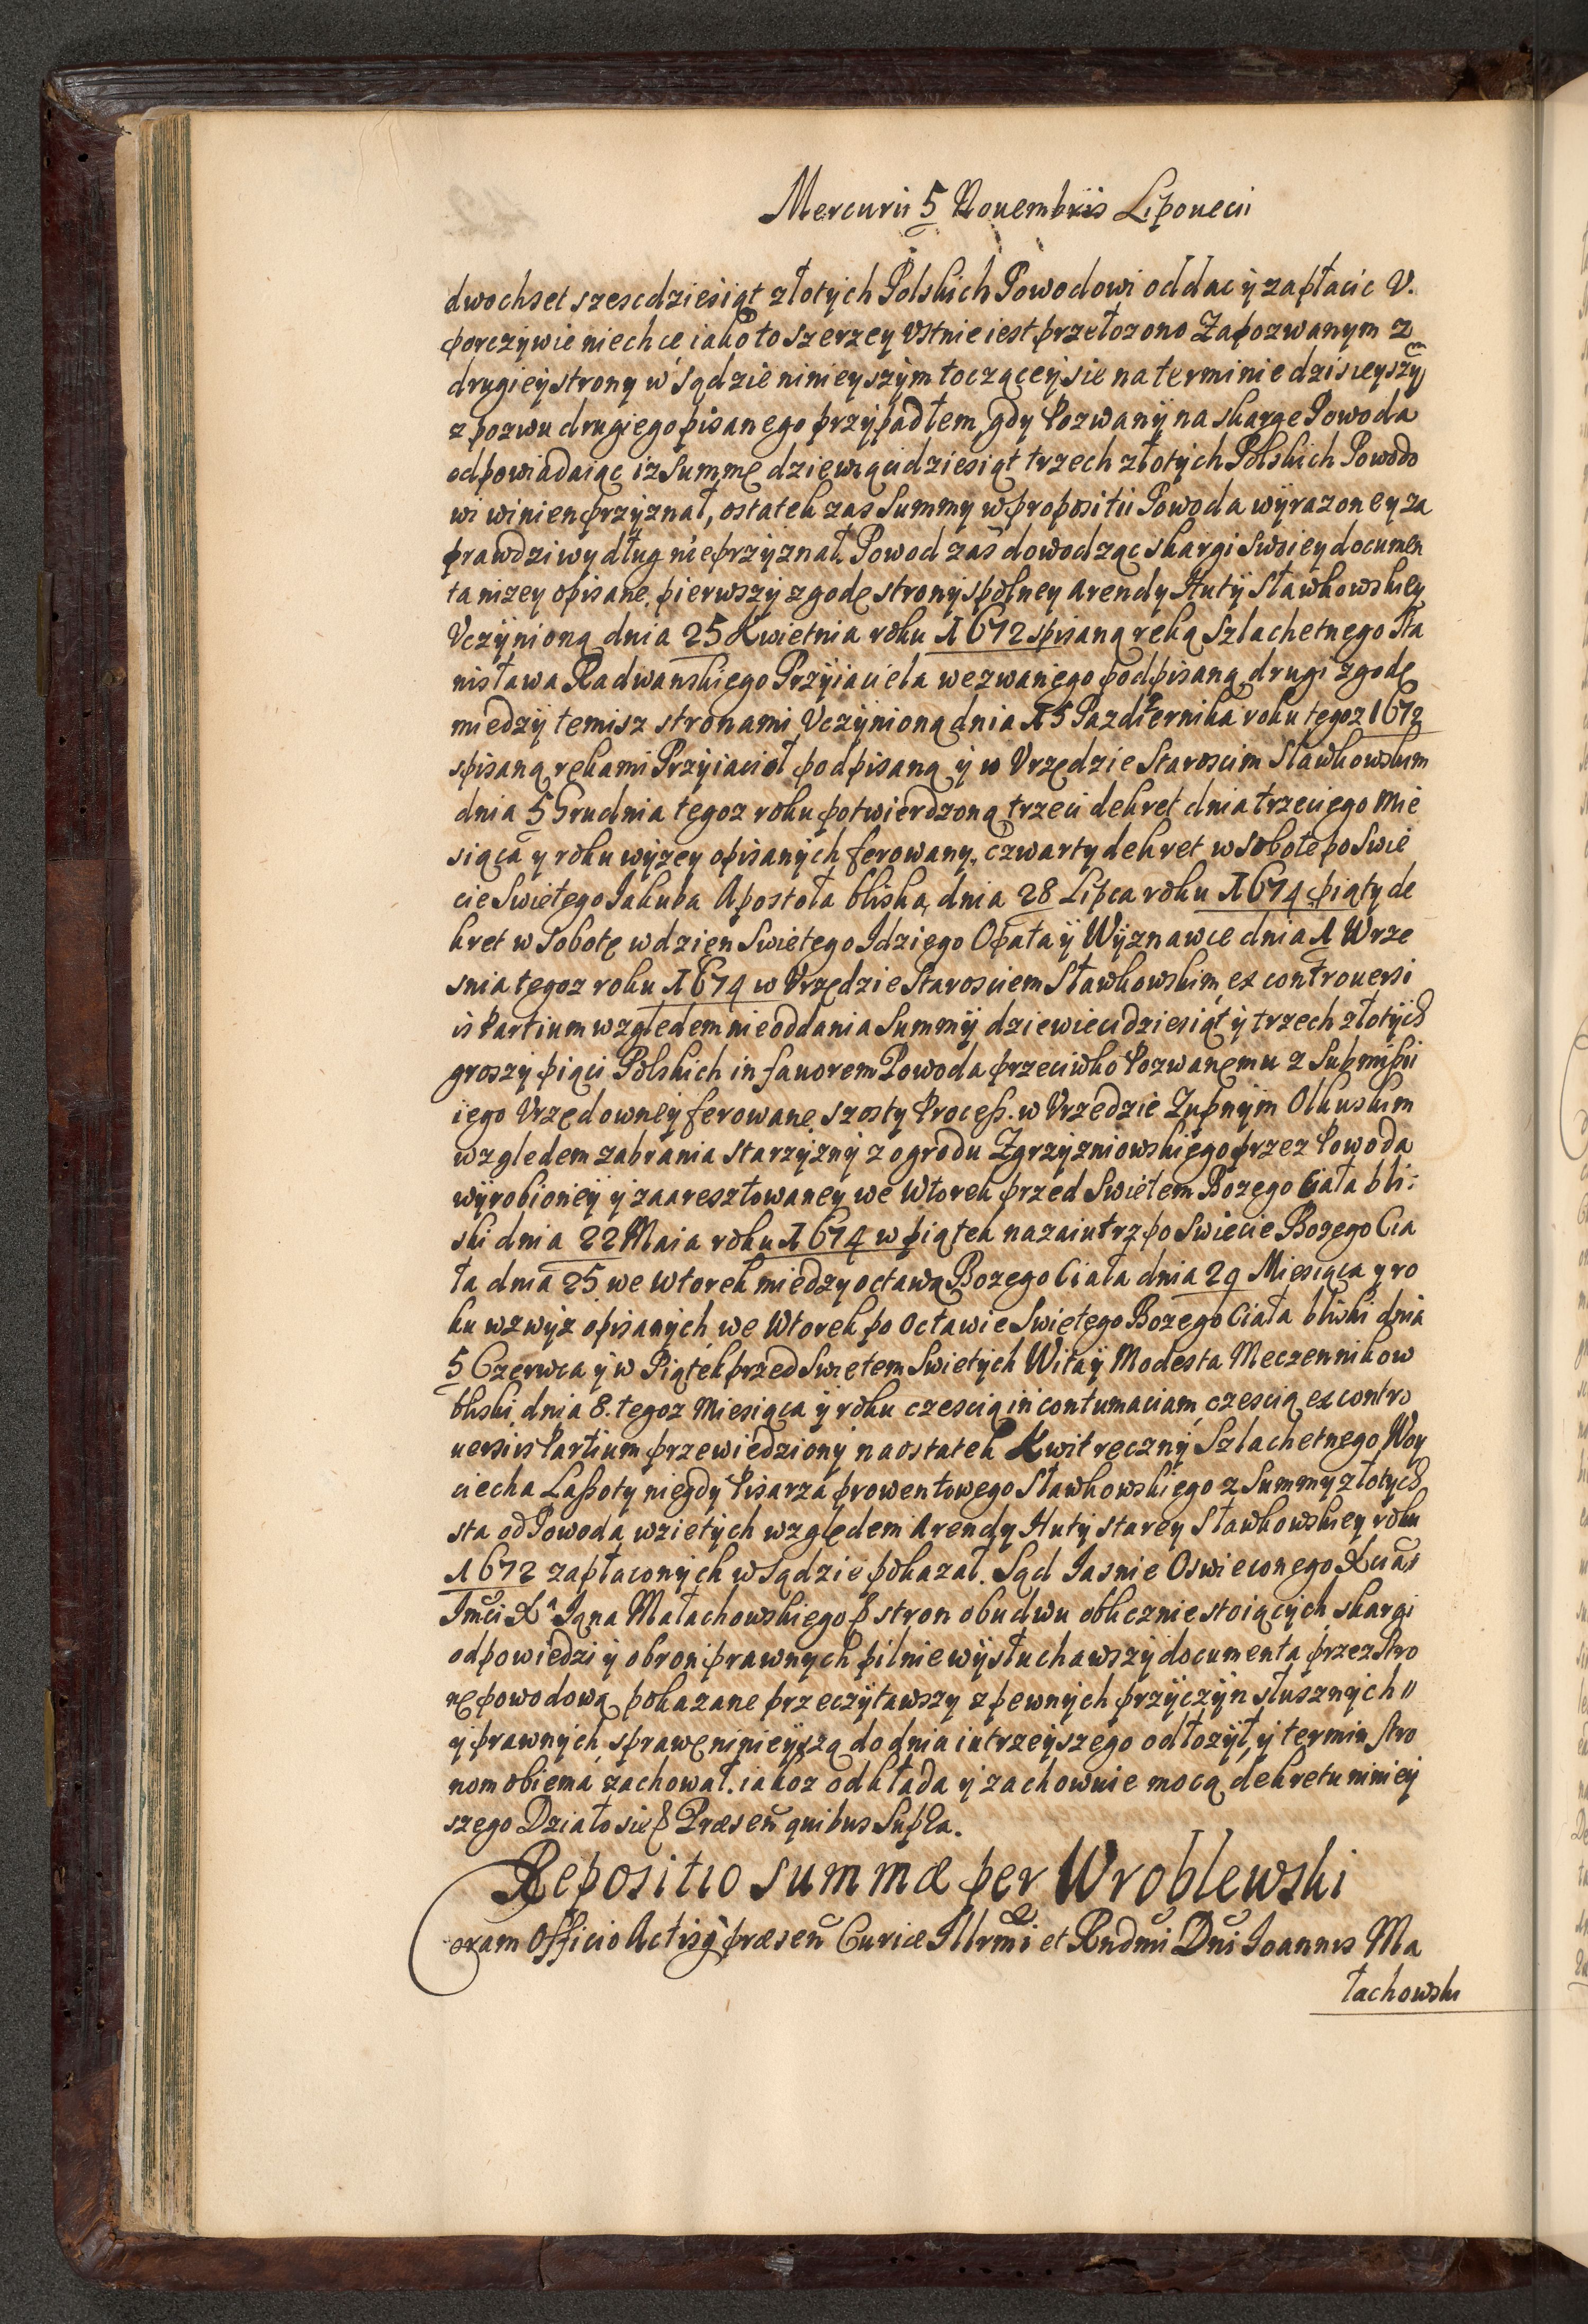 Mercurii 5 Nouembris Lipouecii
dwochset szescdziesiąt złotych Polskich Powodowi oddac ÿ zapłacic V.
porczywie niechce iako to szerzey Vstnie iest przełozono Zapozwanym z
drugieÿ strony w Sądzie ninieyszÿm toczącey sie na terminie dzisieyszÿm
z pozwu drugiego pisanego przÿpadłem, gdy Pozwanÿ na skargę Powoda
odpowiadaiąc iz Summę dziewiącidziesiąt trzech złotÿch Polskich Powodo
wi winien przyznał, ostatek zas Summy w propositii Powoda wÿrazoney za
prawdziwy dług nieprzyznał, Powod zas dowodząc skargi Swoiey documen
ta nizey opisane, pierwszÿ zgodę stronÿ społney Arendy Hutÿ Sławkowskiey
Vczÿnioną dnia 25 Kwietnia roku 1672 spisaną ręką Szlachetnego Sta
nisława Radwanskiego Przÿiaciela wezwanego podpisaną, drugi zgodę
miedzÿ temisz stronami Vczÿnioną dnia 15 Pazdziernika roku tegoz 1672
spisaną rękami Przyiacioł podpisaną ÿ w Vrzędzie Starosciim Sławkowskim
dnia 5 Grudnia tegoz roku potwierdzoną, trzeci dekret dnia trzeciego Mie
siąca y roku wyzey opisanÿch ferowany, czwarty dekret w Sobotę po Swie
cie Swiętego Jakuba Apostoła bliską, dnia 28 Lipca roku 1674 piąty de
kret w Sobotę w dzien Swiętego Idziego Opata ÿ Wÿznawce dnia 1 Wrze
snia tegoz roku 1674 w Vrzędzie Starosciem Sławkowskim, ex controuersi
is Partium względem nieoddania Summÿ dziewiecidziesiąt ÿ trzech złotÿch
groszÿ pięci Polskich in fauorem Powoda przeciwko Pozwanemu z Submissii
iego Vrzędowneÿ ferowane, szosty Process. w Vrzędzie Zupnÿm Olkuskim
względem zabrania starzÿznÿ z ogrodu Zgrzÿzniowskiego przez Powoda
wÿrobioneÿ ÿ zaaresztowaney we Wtorek przed Swiętem Bozego Ciała bli:
ski dnia 22 Maia roku 1674 w piątek nazaiutrz po Swiecie Bozego Cia
ła dnia 25 we Wtorek miedzy octawą Bozego Ciała dnia 29 Miesiąca y ro
ku wzwÿz opisanÿch, we Wtorek po Octawie Swiętego Bozego Ciała bliski dnia
5 Czerwca ÿ w Piątek przed Swiętem Swiętych Wita ÿ Modesta Męczennikow
bliski, dnia 8. tegoz Miesiąca ÿ roku częscią in contumaciam, częscią ex contro
uersiis Partium przewiedzionÿ na ostatek Kwit ręcznÿ Szlachetnego Woy
ciecha Lassoty niegdy Pisarza prowentowego Sławkowskiego z Summy złotych
sta od Powoda wziętych względem Arendy Hutÿ starey Sławkowskiey roku
1672 zapłaconÿch w Sądzie pokazał. Sąd Jasnie Oswieconego Xcia
Jmci Xa Jana Małachowskiego & stron obudwu oblicznie stoiącÿch, skargi
odpowiedzi ÿ obron prawnych pilnie wÿsłuchawszÿ documenta przez Stro
nę powodową pokazane przeczÿtawszy z pewnÿch przÿczÿn słusznÿch
ÿ prawnÿch sprawę ninieÿszą do dnia iutrzeÿszego odłozÿł, ÿ termin Stro
nom obiema zachował. iakoz odkłada ÿ zachowuie mocą dekretu niniey
szego Działo się & Præsen quibus Supra.
Repositio summæ per Wroblewski
Coram Officio Actisq præsen Curiæ Illrmi et Rndmi Dni Joannis Ma
łachowski